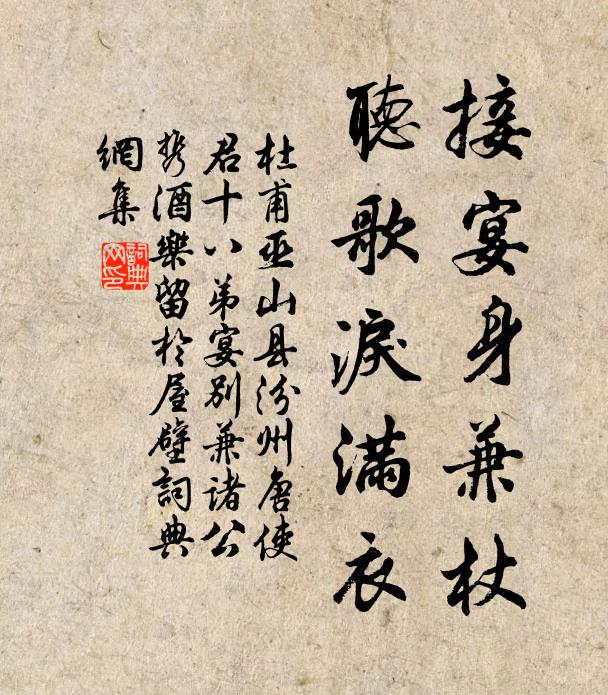 接宴身兼杖
聽歌淚滿衣
杜甫巫山县汾州唐使
君十八弟宴别兼诸公
携酒樂留於屋壁詞典
網集
詞典网印